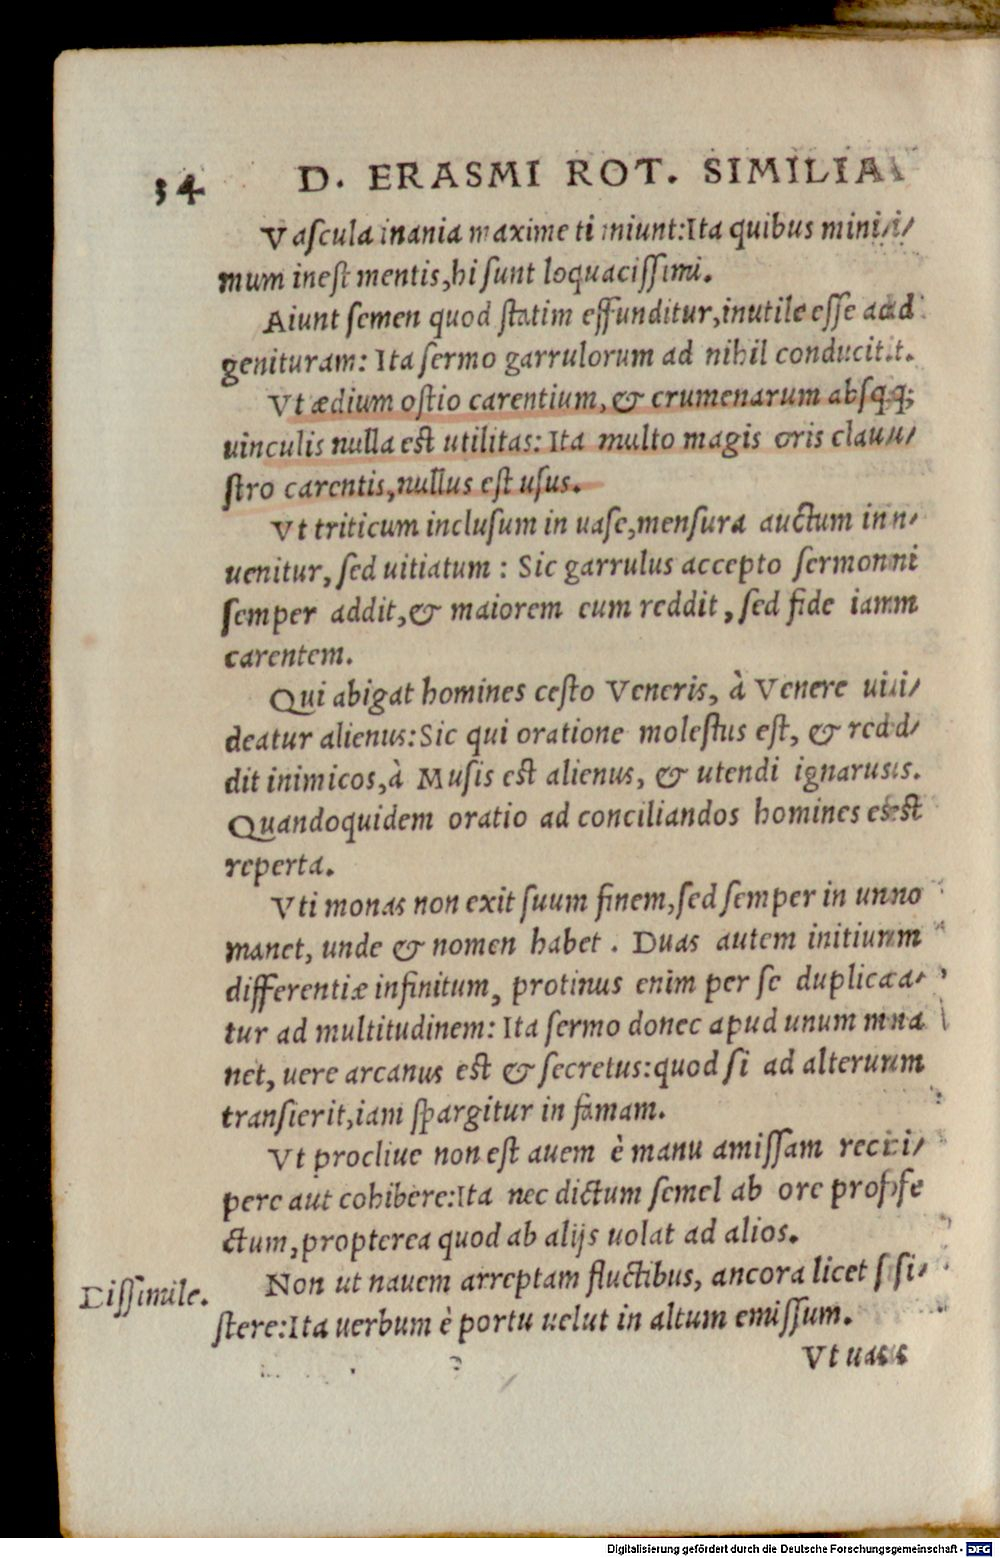 34 D. ERASMI ROT. SIMILIA
Vascula inania maxime tinniunt: Ita quibus mini⸗
mum inest mentis, hi sunt loquacissimi.
Aiunt semen quod statim effunditur, inutile esse ad
genituram: Ita sermo garrulorum ad nihil conducit.
Vt ædium ostio carentium, & crumenarum absq;
uinculis nulla est utilitas: Ita multo magis oris clau⸗
stro carentis, nullus est usus.
Vt triticum inclusum in uase, mensura auctum in⸗
uenitur, sed uitiatum: Sic garrulus accepto sermoni
semper addit, & maiorem eum reddit, sed fide iam
carentem.
Qui abigat homines cesto Veneris, à Venere ui⸗
deatur alienus: Sic qui oratione molestus est, & red⸗
dit inimicos, à Musis est alienus, & utendi ignarus.
Quandoquidem oratio ad conciliandos homines est
reperta.
Vti monas non exit suum finem, sed semper in uno
manet, unde & nomen habet. Duas autem initium
differentiæ infinitum, protinus enim per se duplica⸗
tur ad multitudinem: Ita sermo donec apud unum ma
net, uere arcanus est & secretus: quod si ad alterum
transierit, iam spargitur in famam.
Vt procliue non est auem è manu amissam reci⸗
pere aut cohibere: Ita nec dictum semel ab ore profe
ctum, propterea quod ab alijs uolat ad alios.
Dissimile. Non ut nauem arreptam fluctibus, ancora licet si⸗
stere: Ita uerbum è portu uelut in altum emissum.
Vt uasis
Digitalisierung gefördert durch die Deutsche Forschungsgemeinschaft - DFG